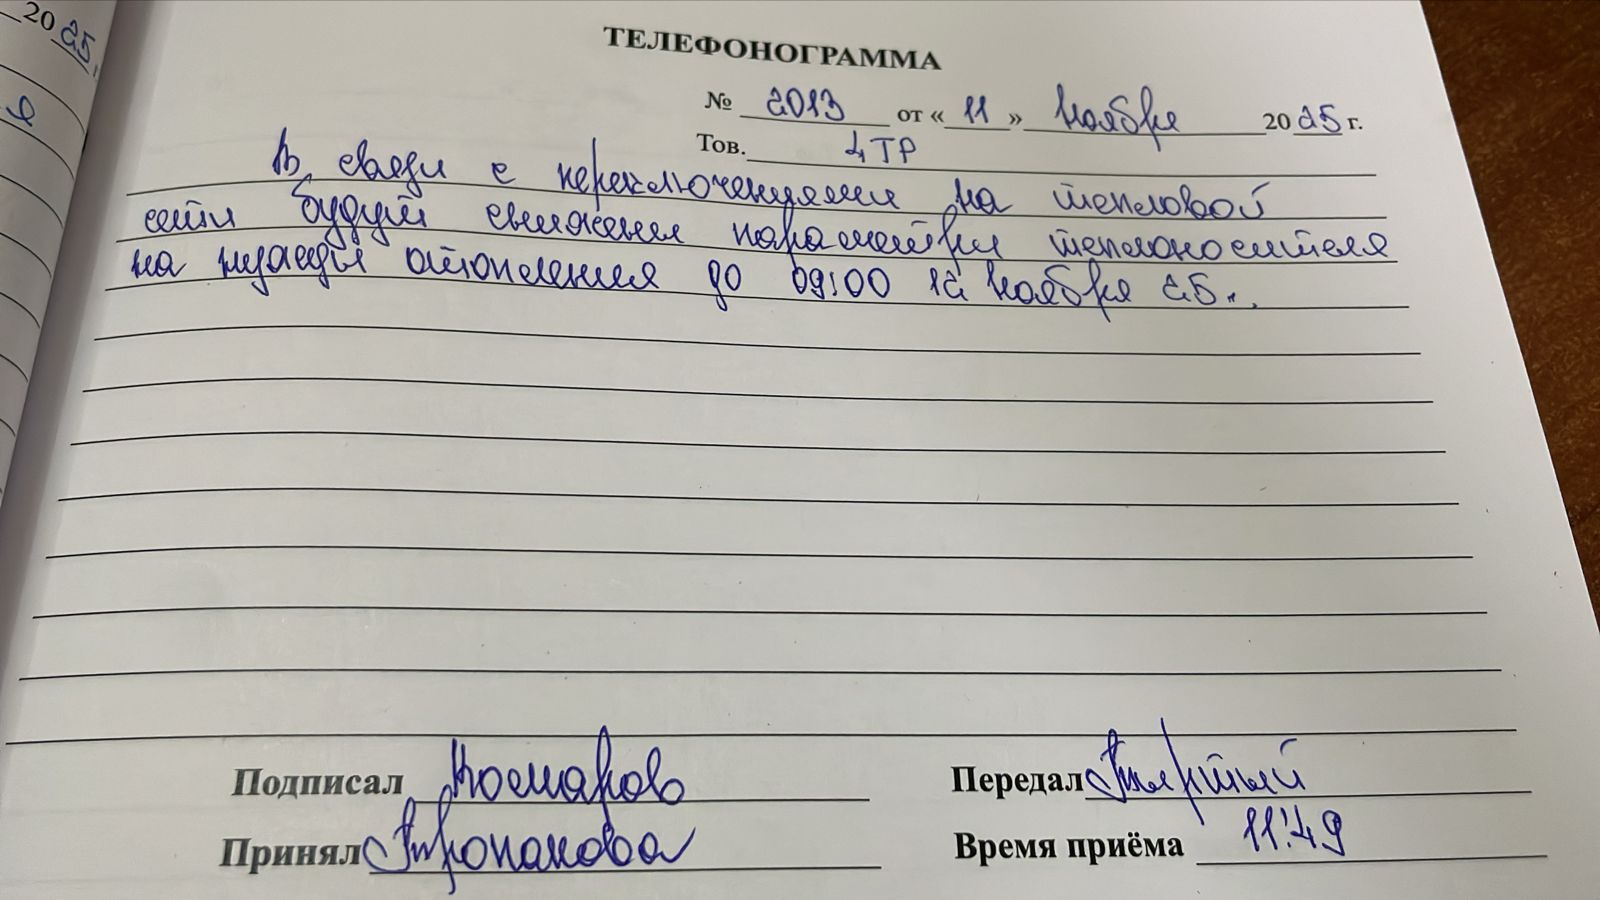 20 25 г.
я
ТЕЛЕФОНОГРАММА
№ 2013 от « 11 » ноября 20 25 г.
Тов. 4 ТР
В связи с переключениями на тепловой
сети будут снижены параметры теплоносителя
на нужды отопления до 09:00 12 ноября 25 г.
Подписал Комаров
Передал
Принял
Время приёма 11:49